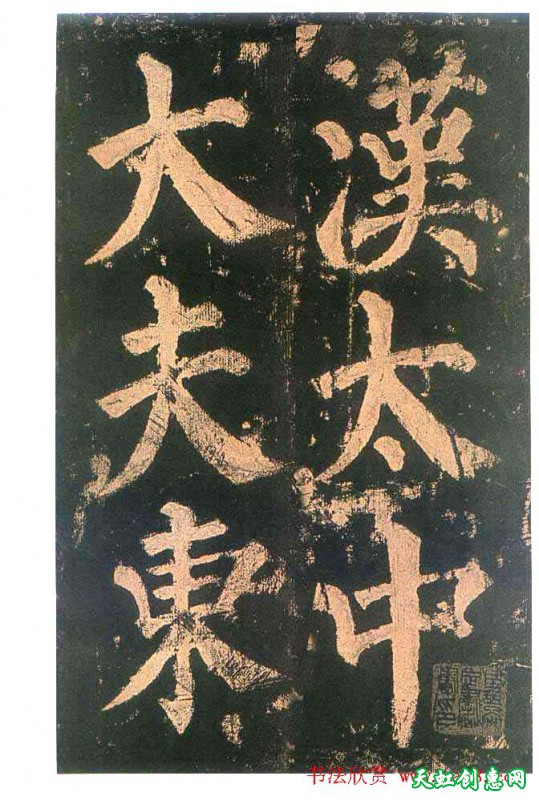 漢太中
大夫東
书法欣赏
天虹创意网